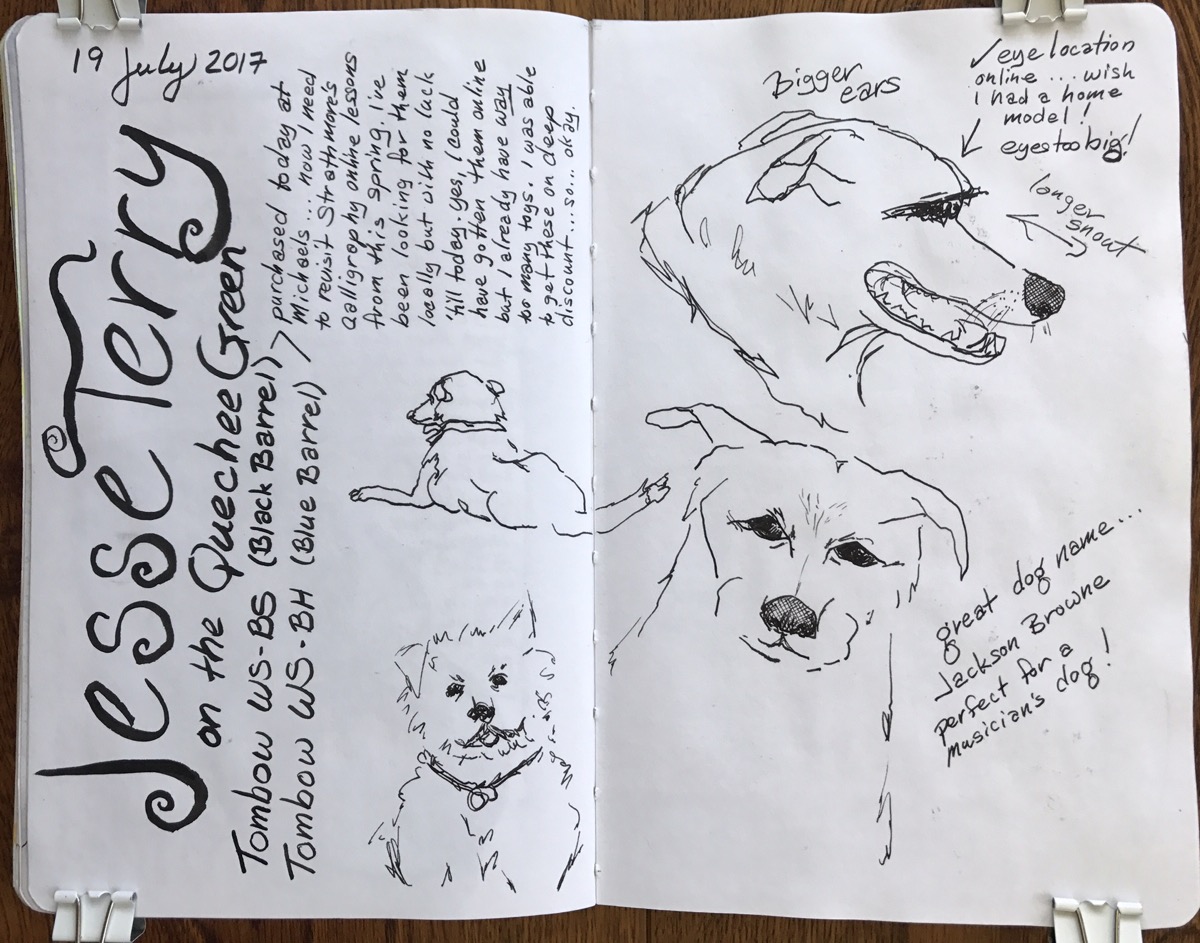 19 July 2017
Jesse Terry
on the Quechee Green
Tombow WS-BS (Black Barrel)
Tombow WS-BH (Blue Barrel)
purchased today at
Michaels... now I need
to revisit Strathmore's
Calligraphy online lessons
from this spring. I've
been looking for them
locally but with no luck
'till today. yes, I could
have gotten them online
but I already have way
too many toys. I was able
to get these on deep
discount...so... okay.
Bigger
ears
✓eye location
online ... wish
I had a home
model!
eyes too big!
longer
snout
great dog name...
Jackson Browne
perfect for a
musician's dog!